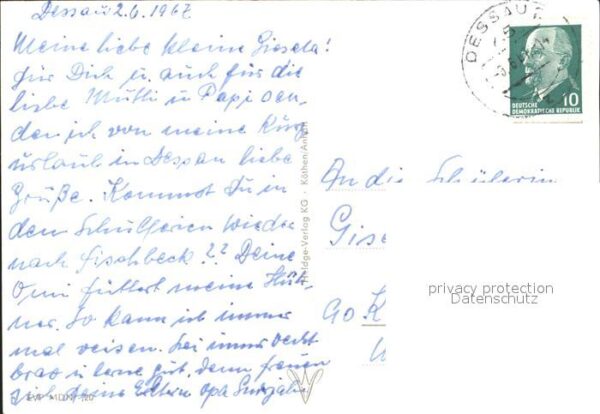 Dessau 2.6.1967
Meine liebe kleine Gisela!
für Dich u. auch für die
liebe Mutti u Papi sen,
de ich von meine Kurz
urlaub in Dessau liebe
Grüße. Kommst Du in
den Schulferien wieder
nach Fischbeck?? Deine
Omi füttert meine Hüh
ner. So kann ich immer
mal reisen. Sei immer recht
brav u lerne gut, denn freuen
sich deine Eltern Opa
An die Schülerin
Gise
DESSAU
10
DEUTSCHE
DEMOKRATISCHE REPUBLIK
-Verlag KG · Köthen/Anhalt
privacy protection
Datenschutz